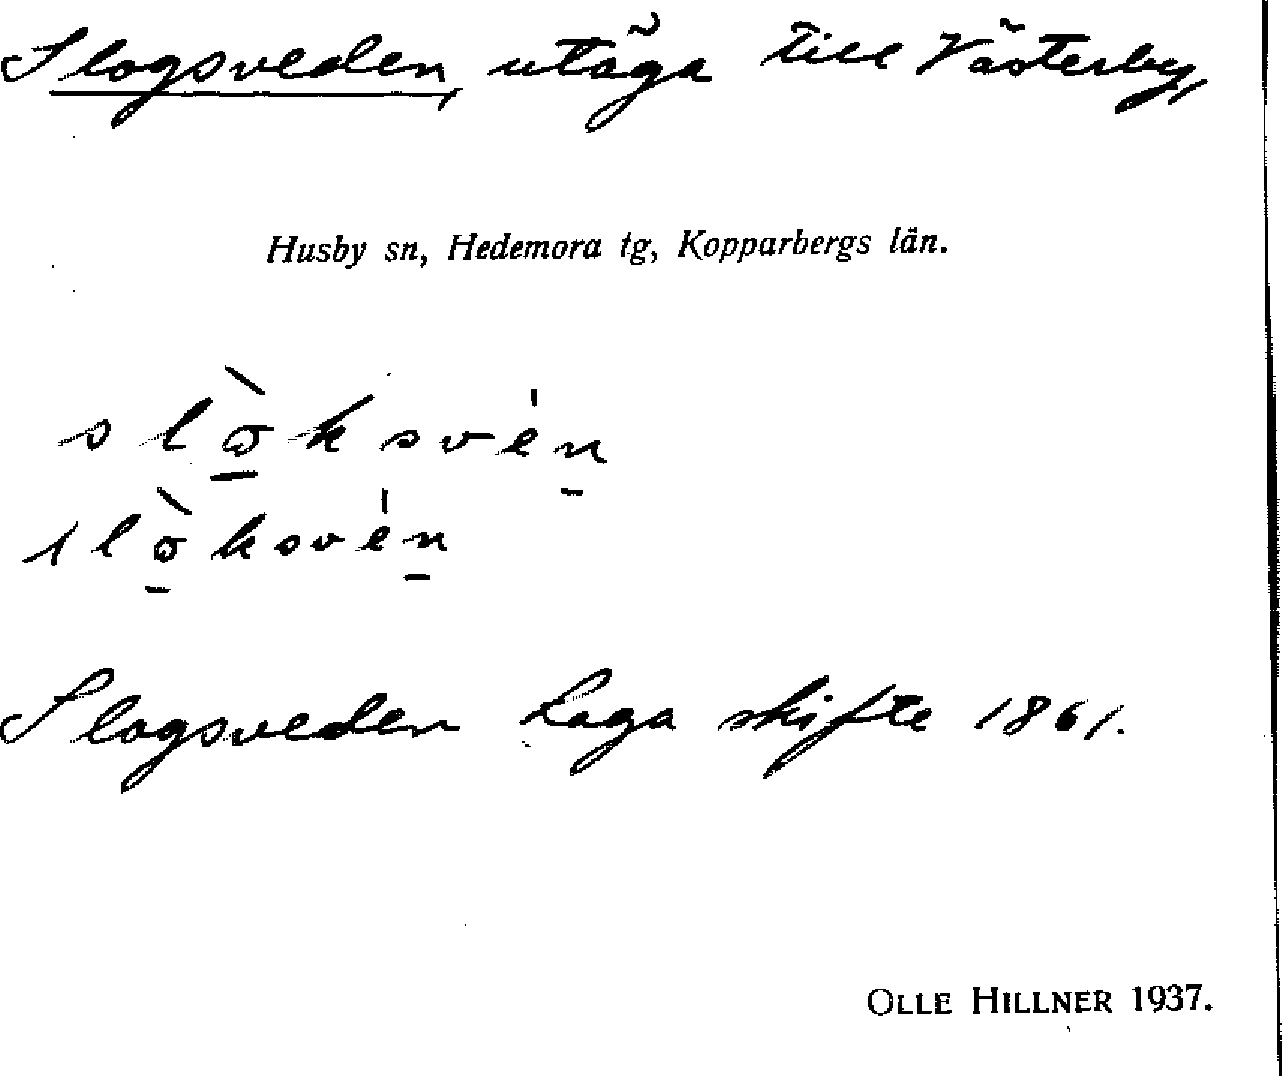 Slogsveden, utäga till Västerby,
Husby sn, Hedemora tg, Kopparbergs län.
slòksvén
slòksvén
Slogsveden Laga skifte 1861.
OLLE HILLNER 1937.